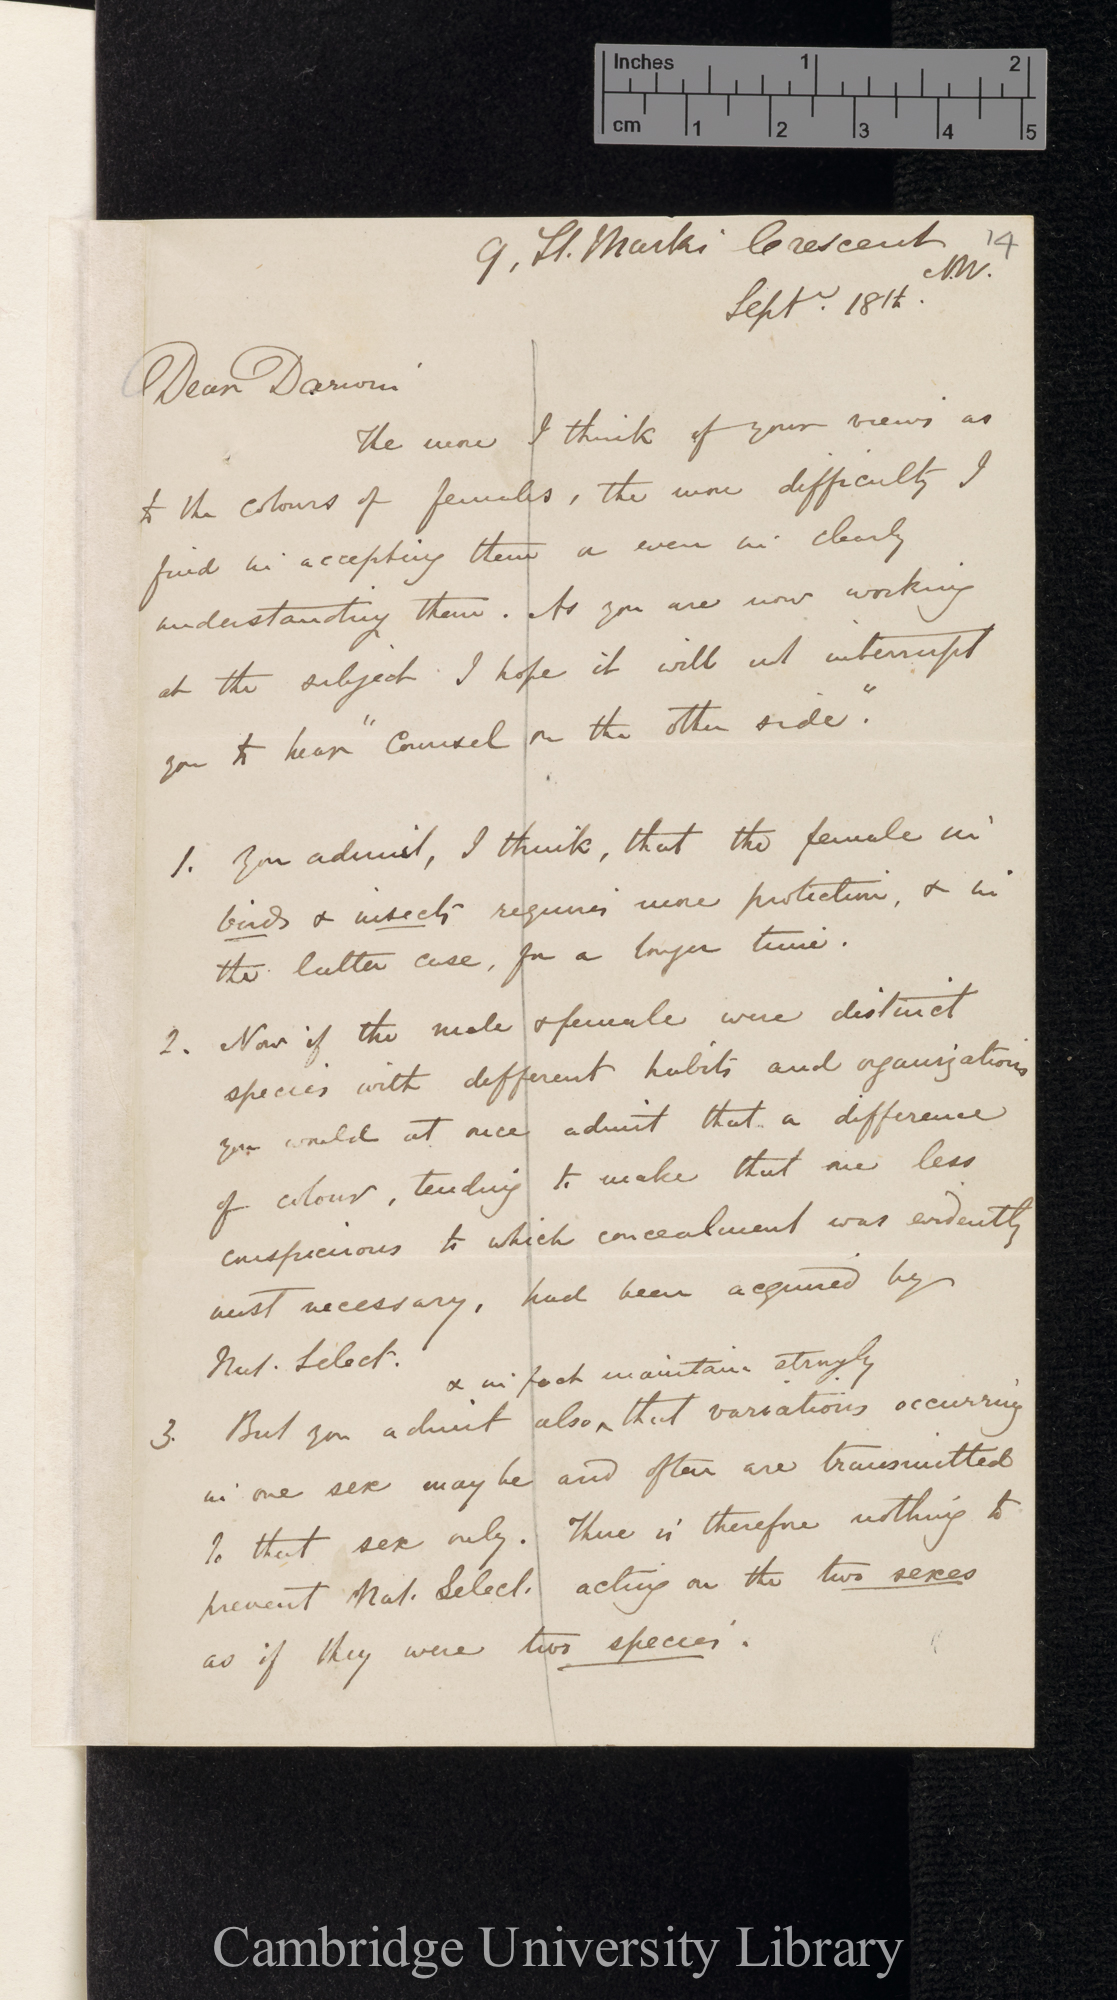 Inches 1 2
cm 1 2 3 4 5
9, St. Mark's Crescent 14
N.W.
Septr. 18th.
Dear Darwin
The more I think of your views as
to the colours of females, the more difficulty I
find in accepting them or even in clearly
understanding them. As you are now working
at the subject I hope it will not interrupt
you to hear "Counsel on the other side".
1. You admit, I think, that the female in
birds & insects requires more protection, & in
the latter case, for a longer time.
2. Now if the male & female were distinct
species with different habits and organizations
you would at once admit that a difference
of colour, tending to make that one less
conspicuous to which concealment was evidently
most necessary, had been acquired by
Nat. Select.
& in fact maintain strongly
3. But you admit also, that variations occurring
in one sex may be and often are transmitted
to that sex only. There is therefore nothing to
prevent Nat. Select. acting on the two sexes
as if they were two species.
Cambridge University Library